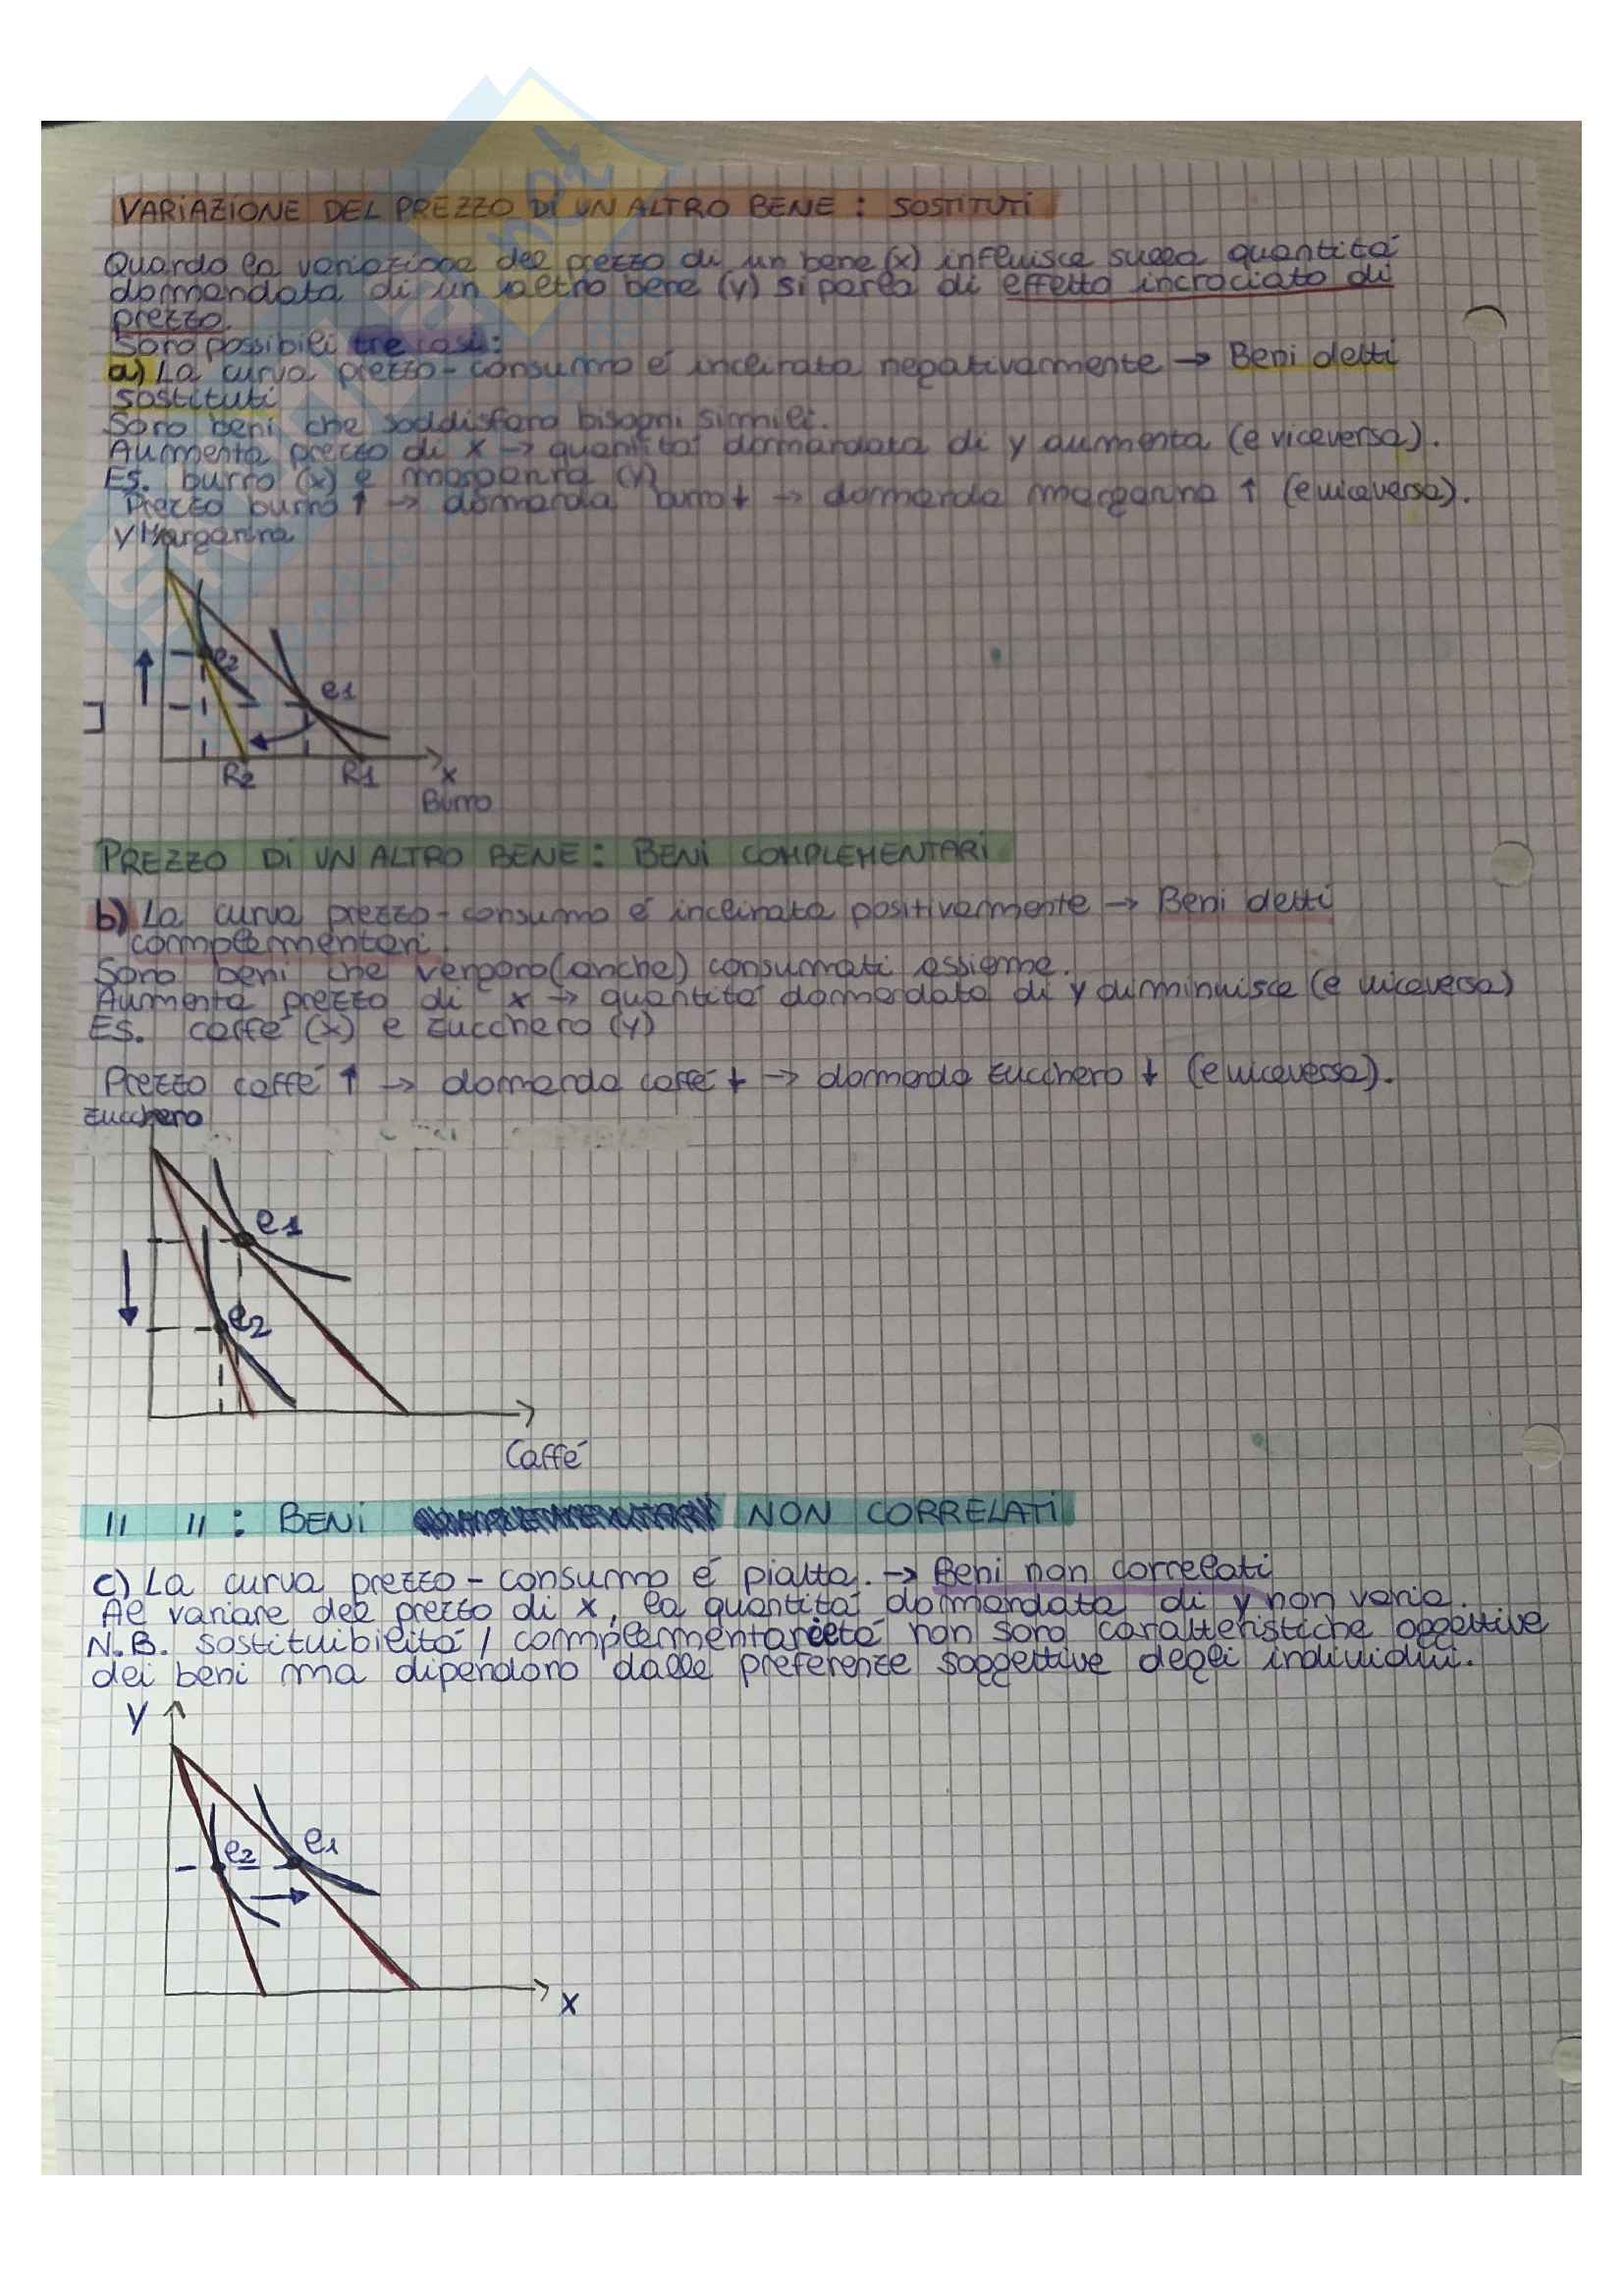 VARIAZIONE DEL PREZZO DI UN ALTRO BENE : SOSTITUTI
Quando la variazione del prezzo di un bene (x) influisce sulla quantità
domandata di un altro bene (y) si parla di effetto incrociato di
prezzo.
Sono possibili tre casi:
a) La curva prezzo-consumo é inclinata negativamente → Beni detti
sostituti
Sono beni che soddisfano bisogni simili.
Aumenta prezzo di x → quantità domandata di y aumenta (e viceversa).
Es. burro (x) e margarina (y)
Prezzo burro ↑ → domanda burro ↓ → domanda margarina ↑ (e viceversa).
y Margarina
e2
e1
R2 R1 x
Burro
PREZZO DI UN ALTRO BENE : BENI COMPLEMENTARI
b) La curva prezzo-consumo é inclinata positivamente → Beni detti
complementari.
Sono beni che vengono (anche) consumati assieme.
Aumenta prezzo di x → quantità domandata di y diminuisce (e viceversa)
ES. caffé (x) e zucchero (y)
Prezzo caffé ↑ → domanda caffé ↓ → domanda zucchero ↓ (e viceversa).
zucchero
e1
e2
Caffé
" " : BENI NON CORRELATI
c) La curva prezzo-consumo é piatta. → Beni non correlati
Al variare del prezzo di x, la quantità domandata di y non varia.
N.B. sostituibilità / complementarietà non sono caratteristiche oggettive
dei beni ma dipendono dalle preferenze soggettive degli individui.
y
e2 e1
x